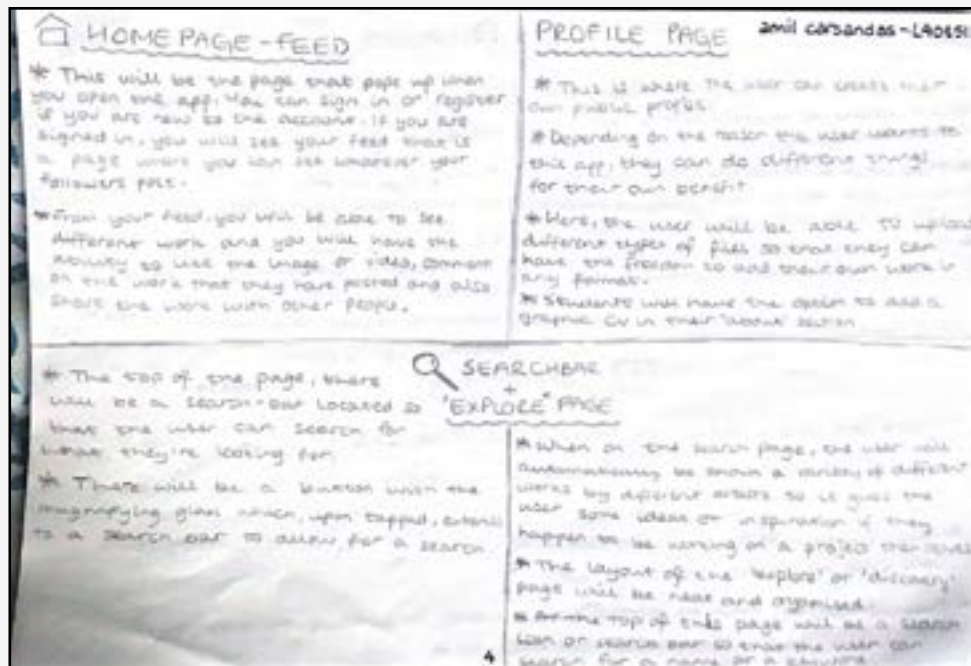 HOMEPAGE - FEED
* This will be the page that pops up when
you open the app. You can sign in or register
if you are new to the account. If you are
signed in, you will see your feed that is
a page where you can see whatever your
followers post.
* From your feed, you will be able to see
different work and you will have the
ability to like the image or video, comment
on the work that they have posted and also
share the work with other people.
PROFILE PAGE
amil carsandas -
* This is where the user can create their
own public profile.
* Depending on the reason the user wants to
this app, they can do different things
for their own benefit
* Here, the user will be able to upload
different types of files so that they can
have the freedom to add their own work in
any format.
* Students will have the option to add a
graphic CV in their 'about' section
SEARCHBAR
+
"EXPLORE" PAGE
* The top of the page, there
will be a search-bar located so
that the user can search for
what they're looking for.
* There will be a button with the
magnifying glass which, upon tapped, extends
to a search bar to allow for a search
* When on the search page, the user will
automatically be shown a variety of different
works by different artists so it gives the
user some ideas or inspiration if they
happen to be working on a project
* The layout of the 'explore' or 'discovery'
page will be neat and organised.
* At the top of this page will be a search
icon or search bar so that the user can
search for a name or a keyword
4